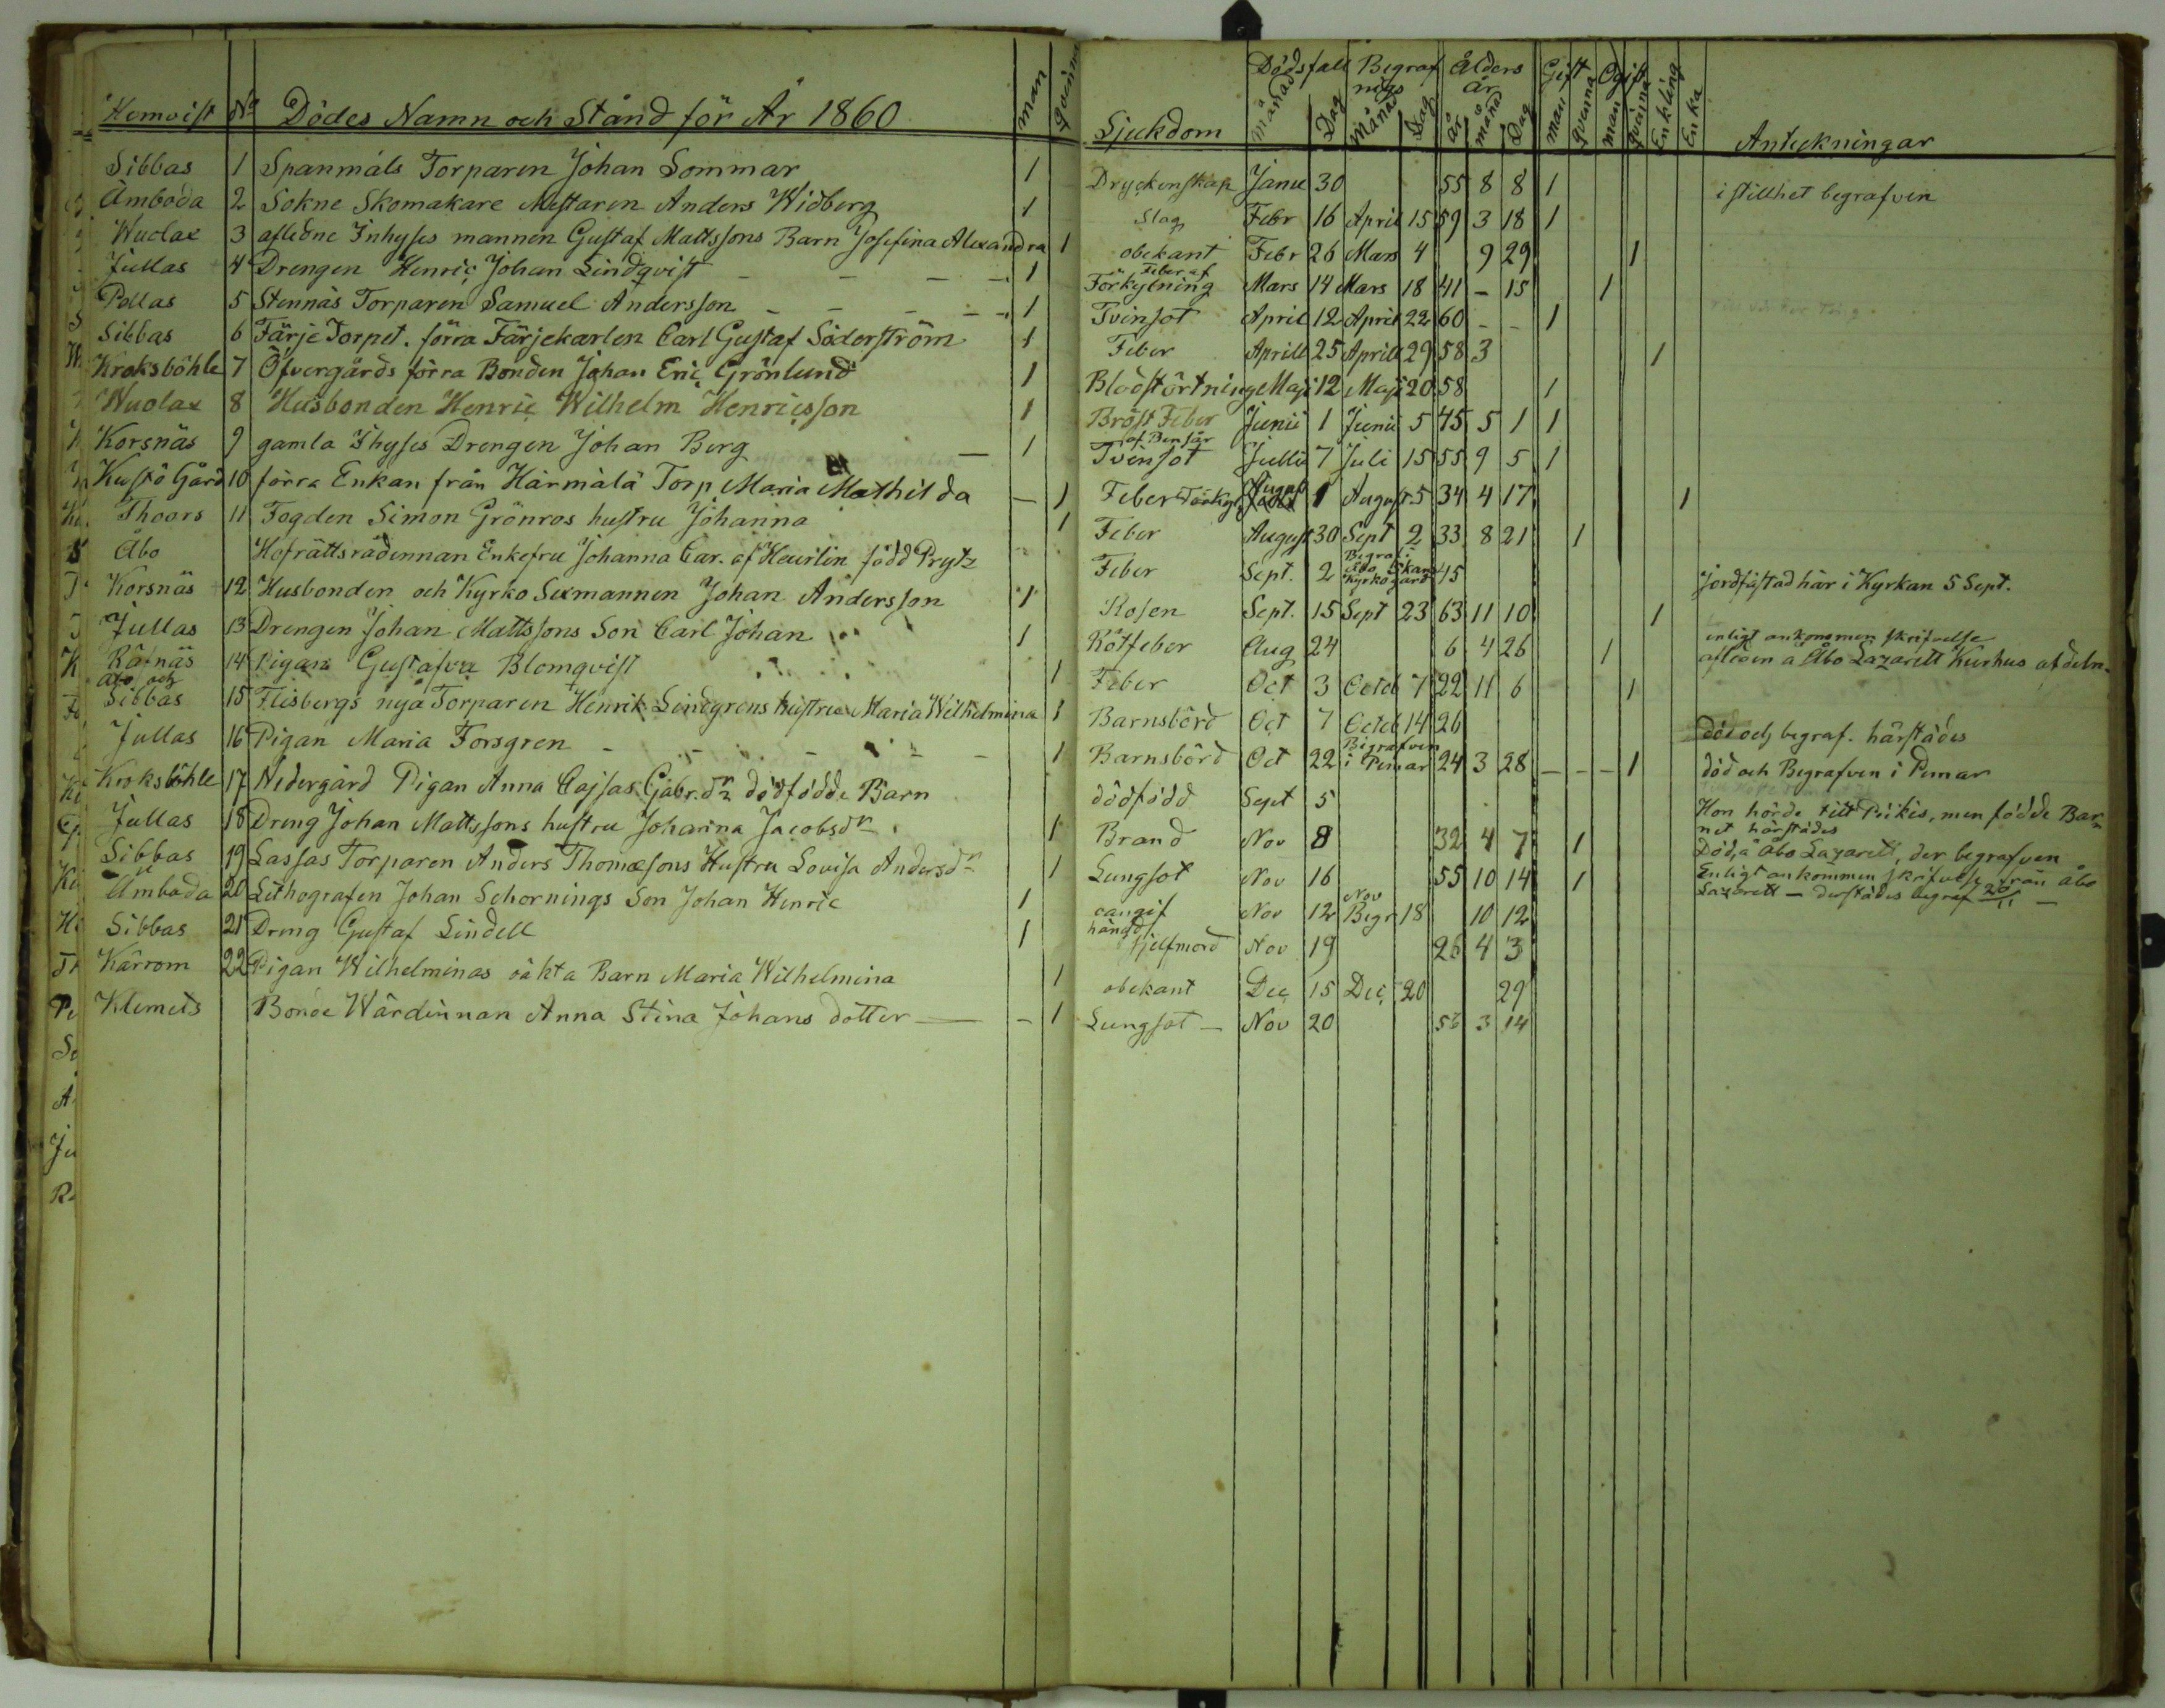 Hemvist No Dödes Namn och Stånd för År 1860 man qvinna
Sibbas 1 Spanmåls Torparen Johan Sommar 1
Ämboda 2 Sokne Skomakare Mestaren Anders Widberg 1
Wuolax 3 afledne Inhyses mannen Gustaf Mattssons Barn Josefina Alexandra 1
Jullas 4 Drengen Henric Johan Lindqvist - - - - 1
Pellas 5 Stennäs Torparen Samuel Andersson - - - - 1
Sibbas 6 Färje Torpet. förra Färjekarlen Carl Gustaf Söderström 1
Kroksböhle 7 Öfvergårds förra Bonden Johan Eric Grönlund 1
Wuolax 8 Husbonden Henric Wilhelm Henricsson 1
Korsnäs 9 gamla Ihyses Drengen Johan Berg — 1
Kustö Gård 10 förra Enkan från Härmälä Torp Maria Mathilda — 1
Thoors 11 Fogden Simon Grönros hustru Johanna 1
Åbo Hofrättsrådinnan Enkefru Johanna Car. af Heurlin född Prytz
Korsnäs 12 Husbonden och Kyrko Sexmannen Johan Andersson 1
Jullas 13 Drengen Johan Mattssons Son Carl Johan 1
Råfnäs 14 Pigan Gustafva Blomqvist 1
Åbo och
Sibbas 15 Flisbergs nya Torparen Henrik Lindgrens hustru Maria Wilhelmina 1
Jullas 16 Pigan Maria Forsgren - - - - - 1
Kroksböhle 17 Nedergård Pigan Anna Cajsas Gabr.dr dödfödde Barn
Jullas 18 Dreng Johan Mattssons hustru Johanna Jacobsdr 1
Sibbas 19 Lassas Torparen Anders Thomæsons Hustru Lovisa Andersdr 1
Ämboda 20 Lithografen Johan Schornings Son Johan Henric 1
Sibbas 21 Dreng Gustaf Lindell 1
Kärrom 22 Pigan Wilhelminas oäkta Barn Maria Wilhelmina 1
Klemets Bonde Wärdinnan Anna Stina Johans dotter — - 1
Sjukdom Dödsfall Begrafnings Ålders år Gift Ogift
månad Dag månad Dag år månad Dag man qvinna man qvinna Enkling Enka Anteckningar
Dryckenskap Janu 30 55 8 8 1 i stillhet begrafven
Slag Febr 16 April 15 59 3 18 1
obekant Febr 26 Mars 4 9 29 1
Feber af
Förkylning Mars 14 Mars 18 41 - 15 1
Tvinsot April 12 April 22 60 - - 1
Feber Aprill 25 Aprill 29 58 3 1
Blodstörtning Maji 12 Maji 20 58 1
Bröst Feber Junii 1 Junii 5 45 5 1 1
af Bensår
Tvinsot Julli 7 Juli 15 55 9 5 1
Feber Förkyl August 1 August. 5 34 4 17 1
Feber August 30 Sept 2 33 8 21 1
Feber Sept. 2 Begraf i Åbo Skans Kyrkogård 45 Jordfästad här i Kyrkan 5 Sept.
Rosen Sept. 15 Sept 23 63 11 10 1
Rötfeber Aug 24 6 4 26 1 enligt ankommen skrifvelse
afleden å Åbo Lazarett Kurhus afdeln.
Feber Oct 3 Octob 7 22 11 6 1
Barnsbörd Oct 7 Octob 14 26 död och begraf. härstädes
Barnsbörd Oct 22 Begrafven i Pemar 24 3 28 — - - 1 död och Begrafven i Pemar
dödfödd Sept 5 Hon hörde till Piikis, men födde Bar-
net härstädes
Brand Nov 8 32 4 7 1 Död, å Åbo Lazarett, der begrafven
Lungsot Nov 16 55 10 14 1 Enligt ankommen skrifvelse från Åbo
Lazarett - derstädes begraf 20/11 —
oangif Nov 12 Nov Begr 18 10 12
hängd
sjelfmord Nov 19 26 4 3
obekant Dec 15 Dec 20 29
Lungsot - Nov 20 56 3 14